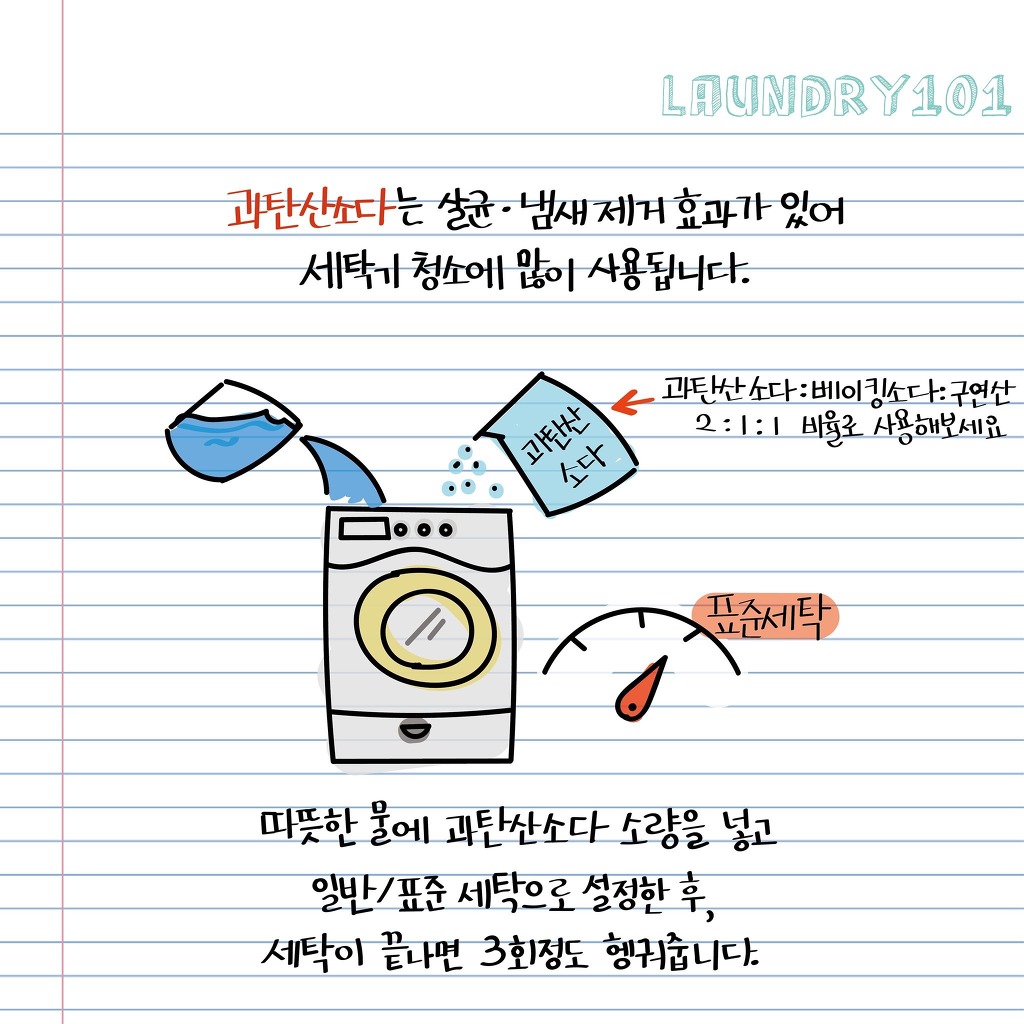 LAUNDRY101
과탄산소다는 살균·냄새제거 효과가 있어
세탁기 청소에 많이 사용됩니다.
과탄산소다:베이킹소다:구연산
2:1:1 비율로 사용해보세요
과탄산
소다
표준세탁
따뜻한 물에 과탄산소다 소량을 넣고
일반/표준 세탁으로 설정한 후,
세탁이 끝나면 3회정도 헹궈줍니다.